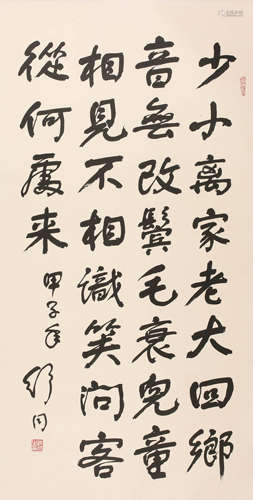 少小离家老大回鄉
音無改鬢毛衰兒童
相見不相識笑問客
從何處来
甲子年
舒同